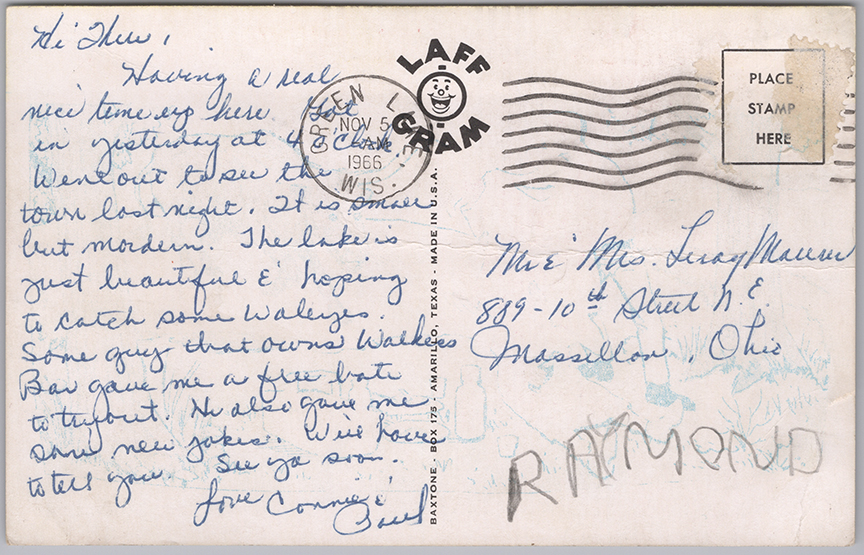 Hi There,
Having a real
nice time up here. Got
in yesterday at 4 o'clock.
Went out to see the
town last night. It is small
but mordern. The lake is
just beautiful & hoping
to catch some Waleyes.
Some guy that owns Walkers
Bar gave me a free bait
to try out. He also gave me
some new jokes. We'll have
to tell you. See ya soon.
Love Connie &
Paul
LAFF
GRAM
GREEN LAKE
NOV 5
AM
1966
WIS.
BAXTONE - BOX 175 - AMARILLO, TEXAS - MADE IN U.S.A.
PLACE
STAMP
HERE
Mr & Mrs. Leroy
889-10th Street N.E.
Massillon, Ohio
RAYMOND